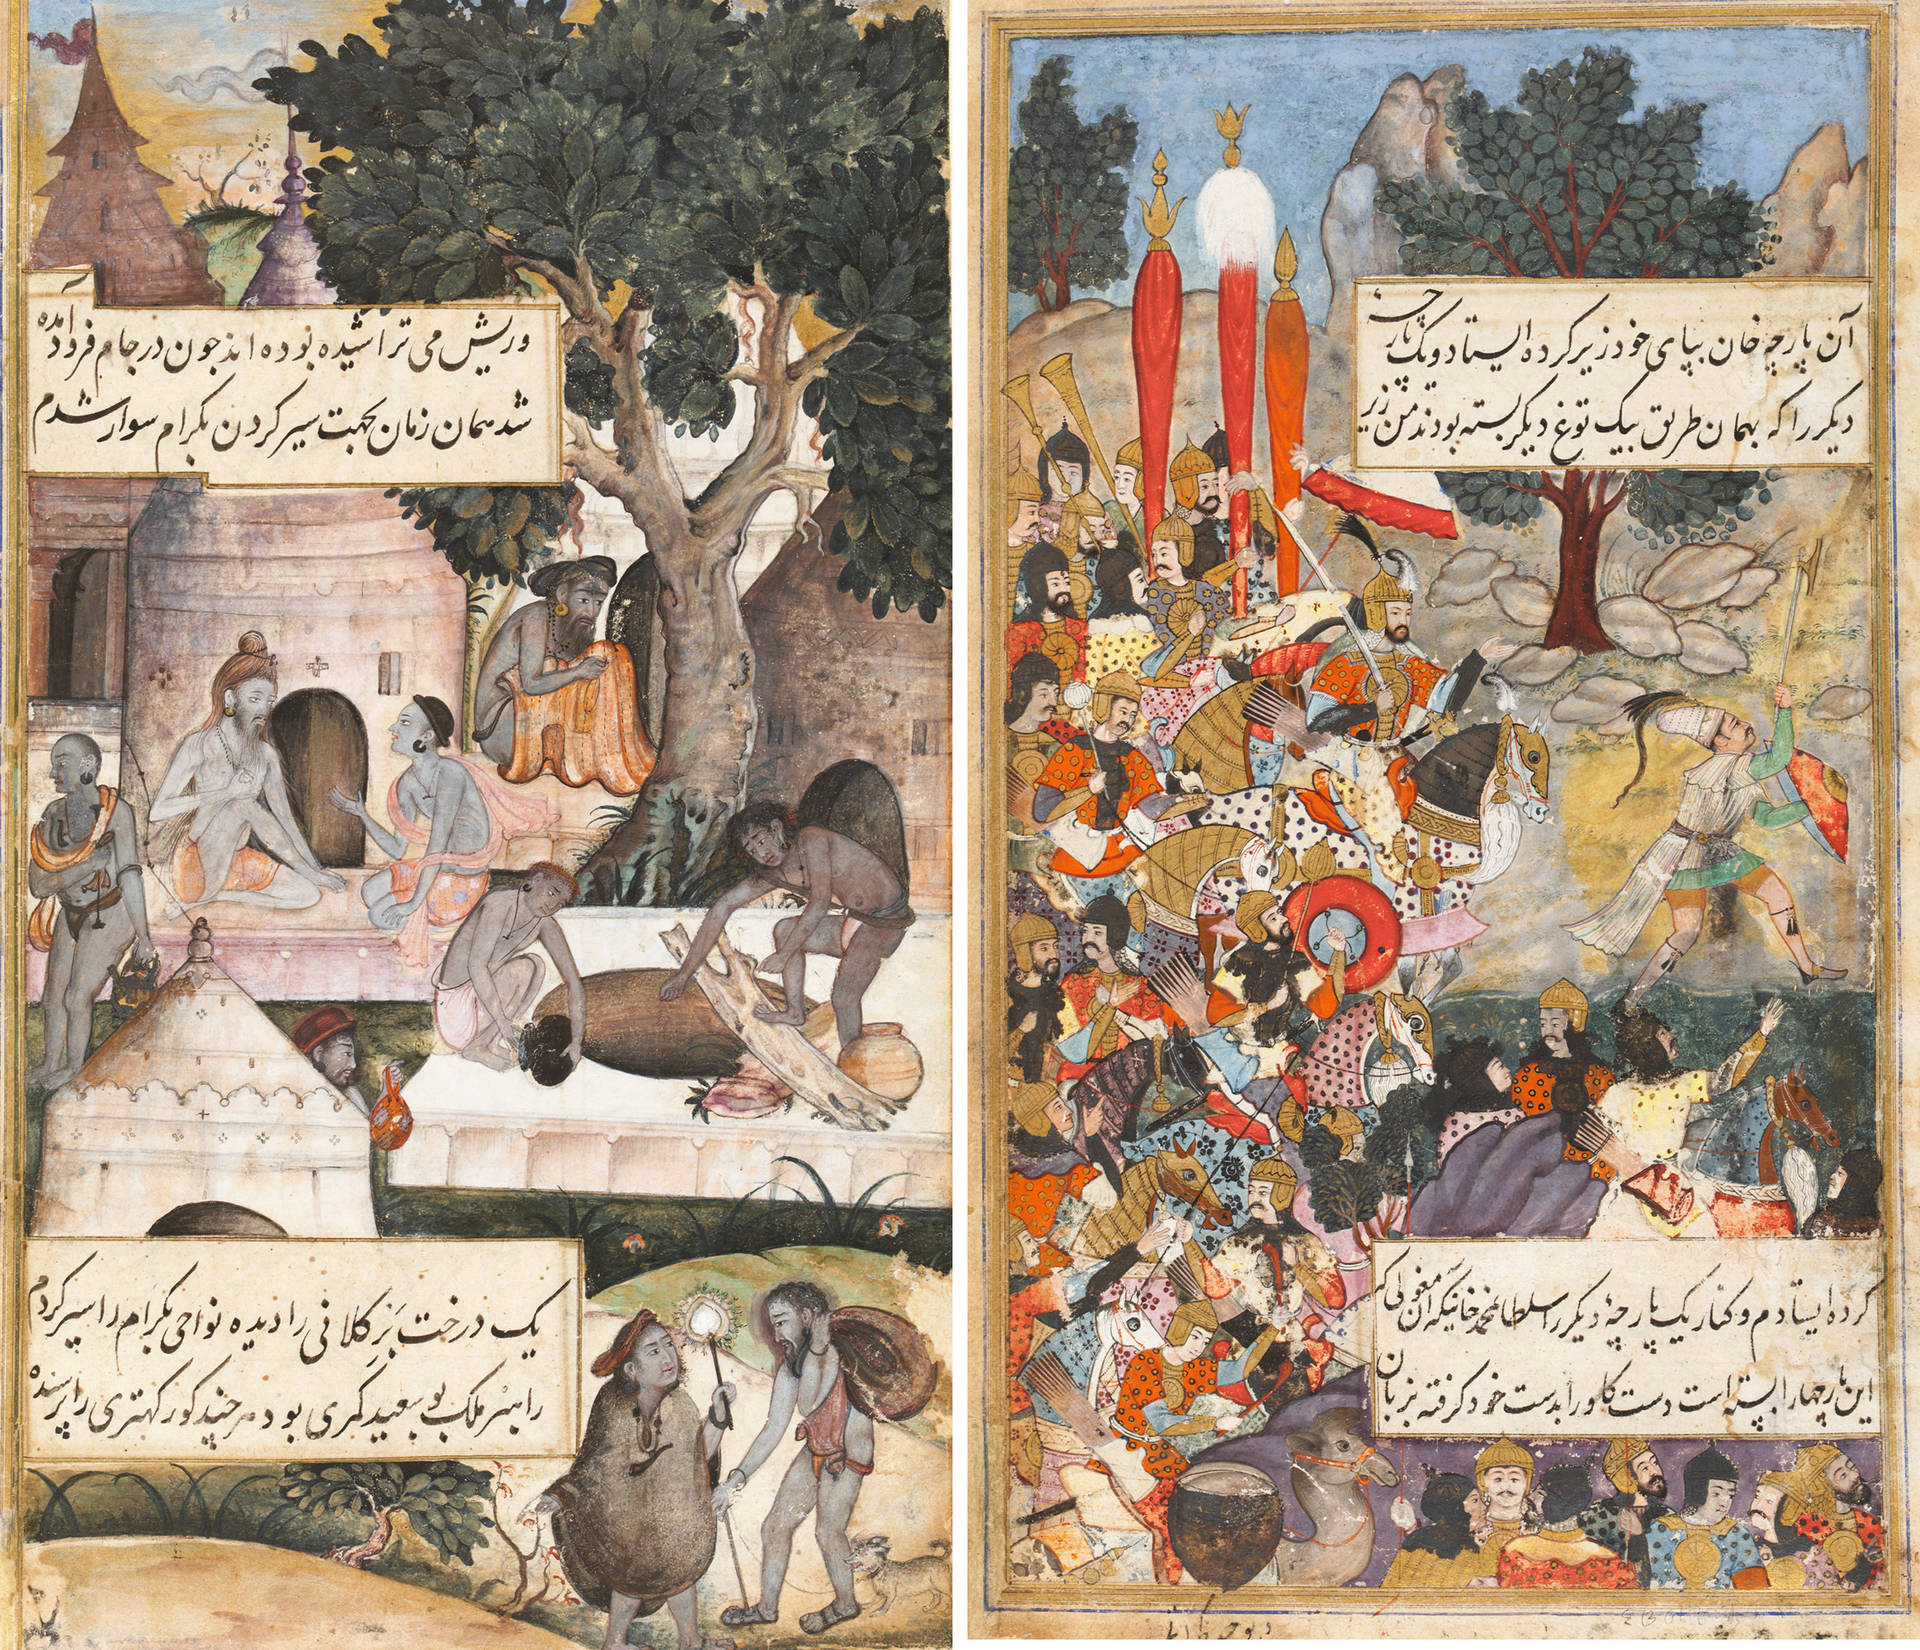 وریش می تراشیده بوده اند جون در جام فرود آمده
شد همان زمان بجهت سیر کردن بکرام سوار شدم
یک درخت بز کلانی را دیده نواحی بکرام را سیر کردم
راهبر ملک بوسعید کمری بود هر چند کور کهتری را پرسیده
آن پارچه خان بپای خود زیر کرده ایستاد و یک پارچه
دیکر را که بهمان طریق بیک توغ دیکر بسته بودند من زیر
کرده ایستادم و کنار یک پارچهٔ دیکر را سلطان محمد خانیکه آن مغولی که
این پارچها را بسته است دست کاو را بدست خود کرفته بزبان